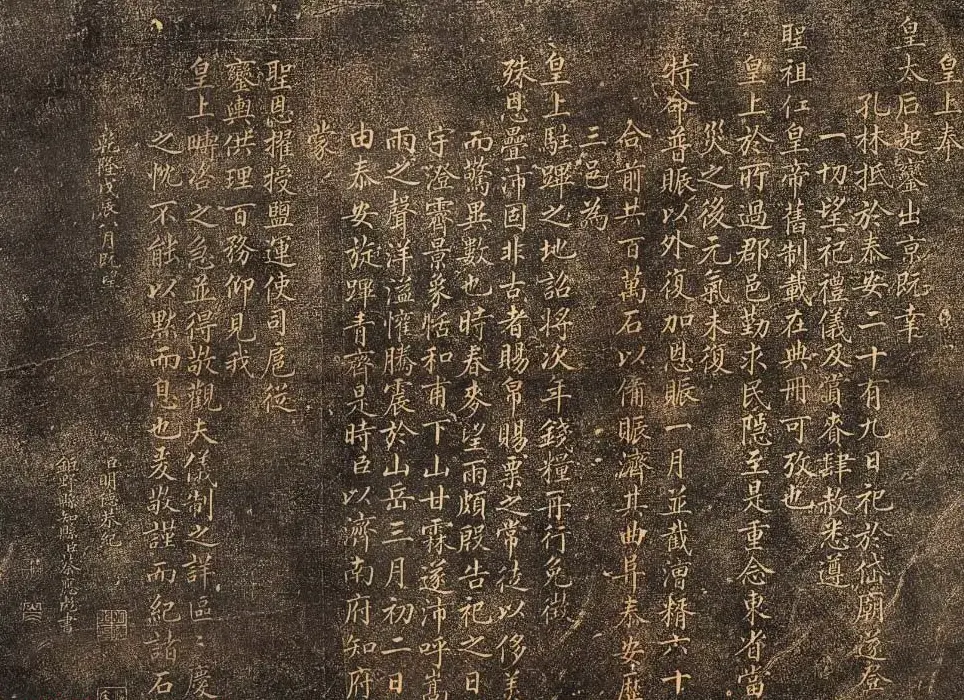 皇上奉
皇太后起鑾出京既幸
孔林抵於泰安二十有九日祀於岱廟遂登
一切望祀禮儀及賞賚肆赦悉遵
聖祖仁皇帝舊制載在典冊可攷也
皇上於所過郡邑勤求民隱至是重念東省當
災之後元氣未復
特命普賑以外復加恩賑一月並截漕糈六十
合前共百萬石以備賑濟其曲阜泰安歷
三邑為
皇上駐蹕之地詔將次年錢糧再行免徵
殊恩疊沛固非古者賜帛賜粟之常徒以侈美
而驚異數也時春麥望雨頗殷告祀之日
宇澄霽景象恬和甫下山甘霖遂沛呼嵩
雨之聲洋溢懽騰震於山岳三月初二日
由泰安旋蹕青齊是時臣以濟南府知府
蒙
聖恩擢授鹽運使司扈從
鑾輿供理百務仰見我
皇上疇咨之急並得敬觀夫儀制之詳區區慶
之忱不能以默而息也爰敬謹而紀諸石
乾隆戊辰八月既望
臣明德恭紀
鉅野縣知縣臣蔡應彪書